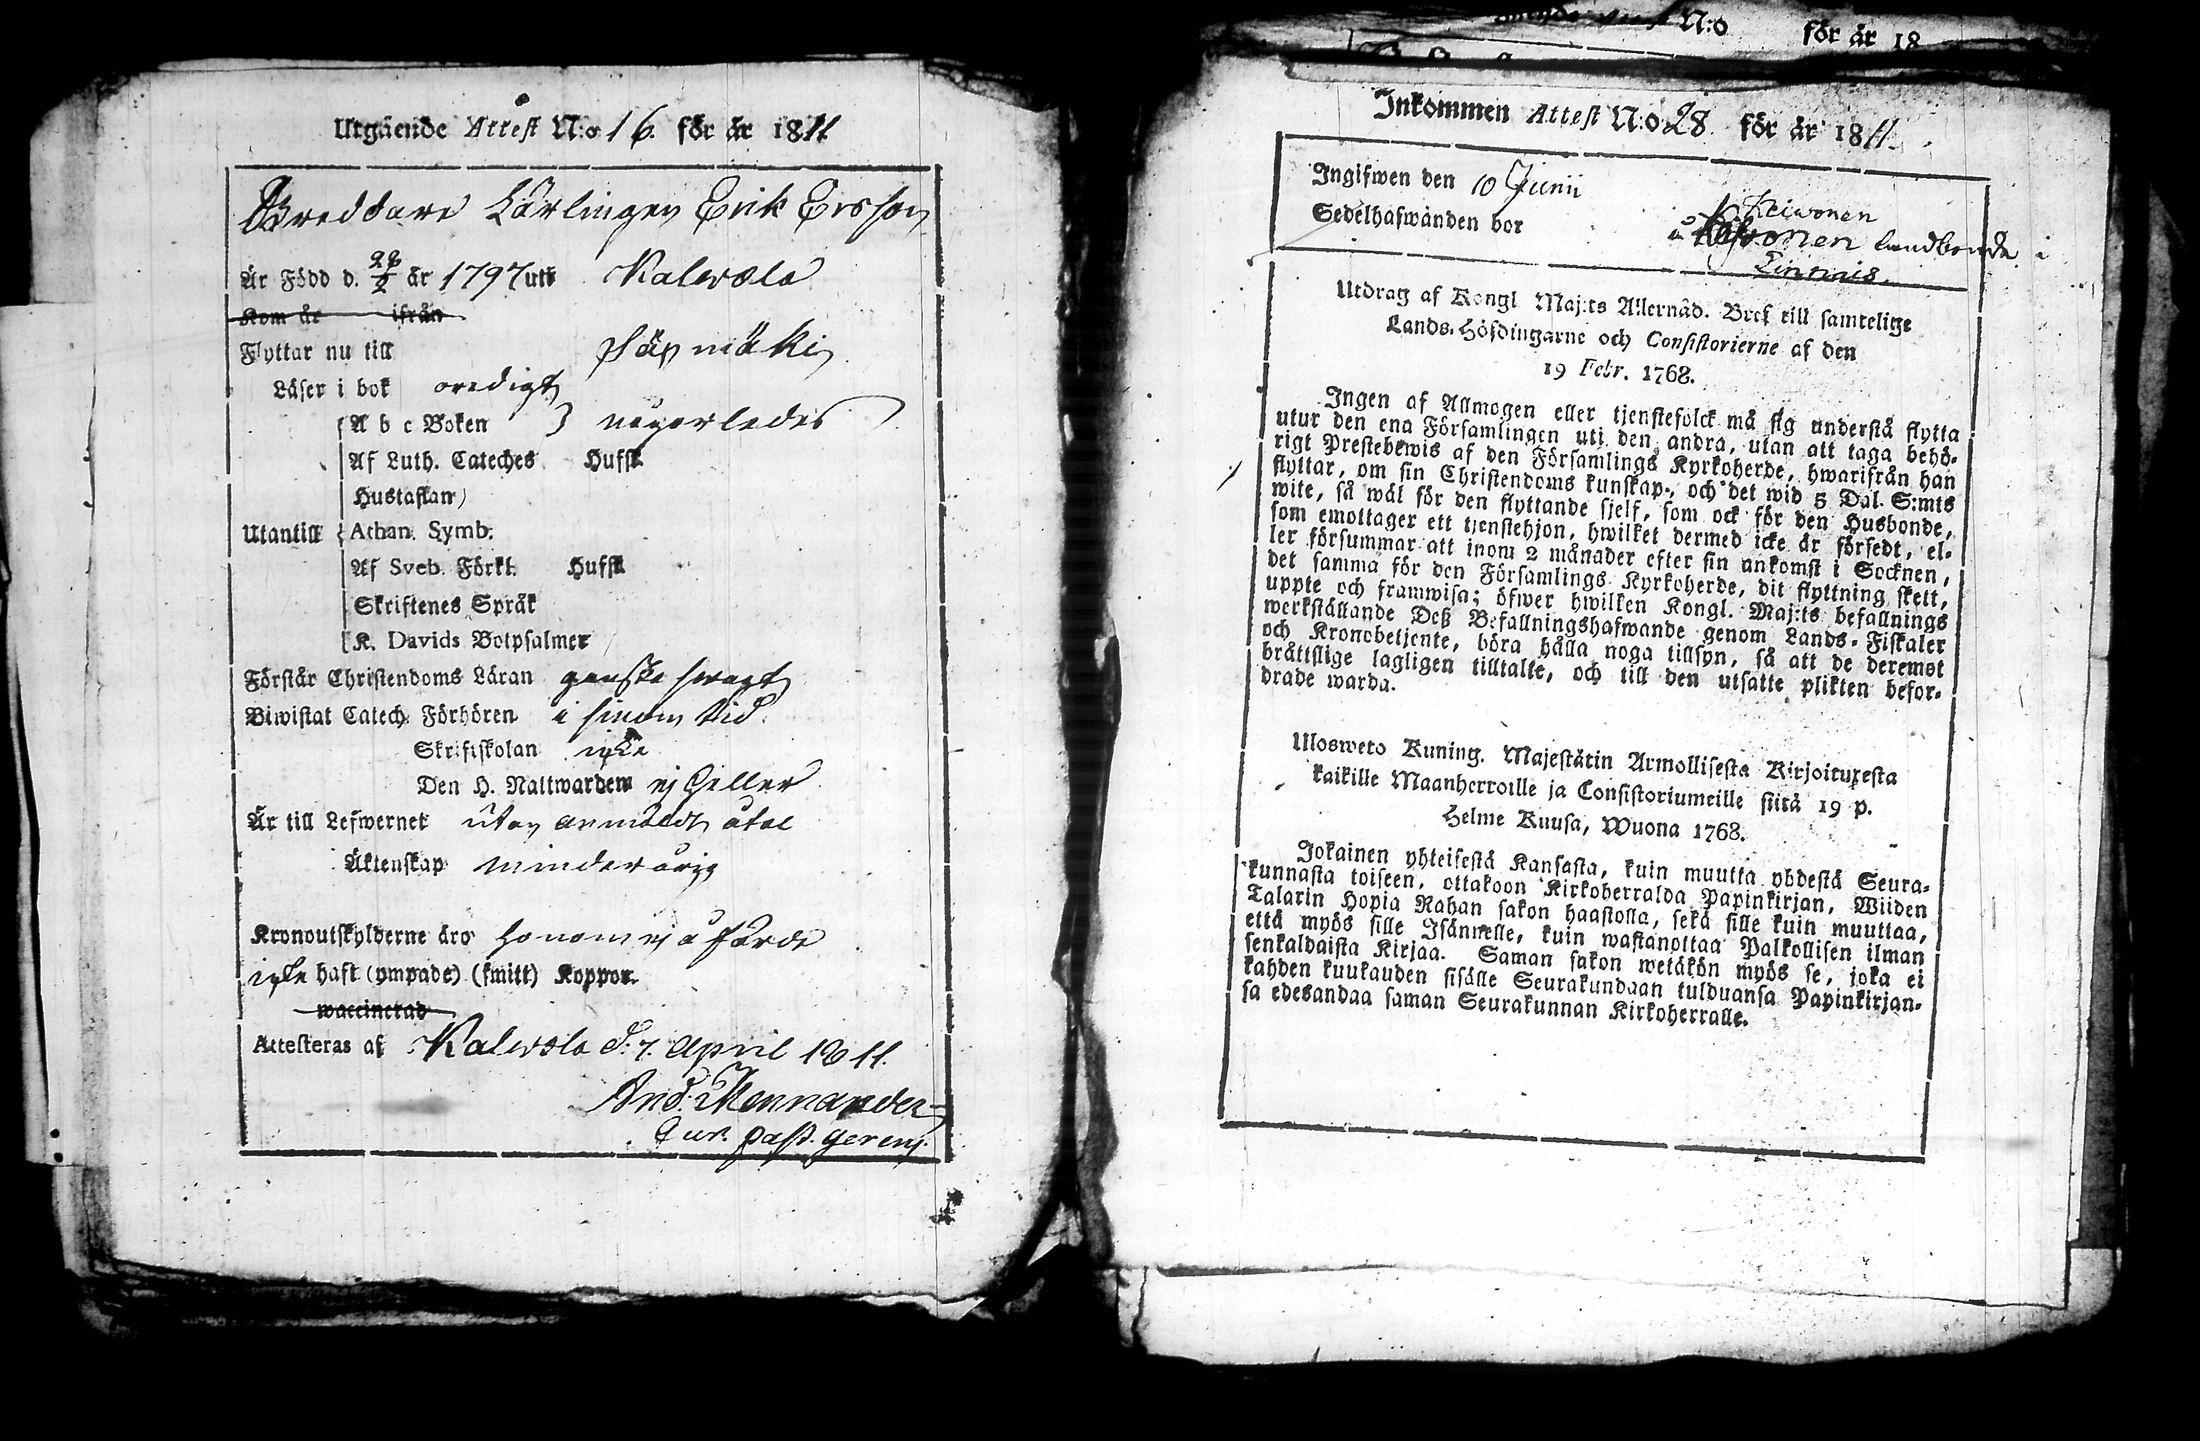 Utgående Attest N:o 16. för år 1811
Skreddare Lärlingen Erik Ersson
Är Född d. 28/2 år 1797 uti Kalwola
Kom år ifrån
Flyttar nu till Säxmäki
Läser i bok oredigt
A b c Boken } någorledes
Af Luth. Cateches Hufst
Hustaflan
Utantill Athan. Symb.
Af Sveb. Förkl. Hufst
Skriftenes Språk
K. Davids Botpsalmer
Förstår Christendoms Läran ganska swagt
Biwistat Catech. Förhören i sinom tid
Skriftskolan icke
Den H. Nattwarden ej heller
Är till Lefwernet utan anmäldt åtal
Äktenskap minderårig
Kronoutskylderne äro honom ej åförde
icke haft (ympade) (smitt) Koppor.
waccinerad
Attesteras af Kalwola d. 7. April 1811.
And. Mennander
Cur. past. gerens.
N:o för år 18
Inkommen Attest N:o 28 för år 1811.
Ingifwen den 10 Junii
Keiwonen
Sedelhafwanden bor å landbonde i
Linnais.
Utdrag af Kongl. Maj:ts Allernåd. Bref till samtelige
Lands-Höfdingarne och Consistorierne af den
19 Febr. 1768.
Ingen af Allmogen eller tjenstefolck må sig understå flytta
utur den ena Församlingen uti den andra, utan att taga behö-
rigt Prestebewis af den Församlings Kyrkoherde, hwarifrån han
flyttar, om sin Christendoms kunskap, och det wid 5 Dal. S:mts
wite, så wäl för den flyttande sjelf, som ock för den Husbonde,
som emottager ett tjenstehjon, hwilket dermed icke är försedt, el-
ler försummar att inom 2 månader efter sin ankomst i Socknen,
det samma för den Församlings Kyrkoherde, dit flyttning skett,
uppte och framwisa; öfwer hwilken Kongl. Maj:ts befallnings
werkställande Deß Befallningshafwande genom Lands-Fiskaler
och Kronobetjente, böra hålla noga tillsyn, så att de deremot
bråttslige lagligen tilltalte, och till den utsatte plikten befor-
drade warda.
Ulosweto Kuning. Majestätin Armollisesta Kirjoituxesta
kaikille Maanherroille ja Consistoriumeille siitä 19 p.
Helme Kuusa, Wuona 1768.
Jokainen yhteisestä Kansasta, kuin muutta yhdestä Seura-
kunnasta toiseen, ottakoon Kirkoherralda Papinkirjan, Wiiden
Talarin Hopia Rahan sakon haastolla, sekä sille kuin muuttaa,
että myös sille Isännelle, kuin wastanottaa Palkollisen ilman
senkaldaista Kirjaa. Saman sakon wetäkön myös se, joka ei
kahden kuukauden sisälle Seurakundaan tulduansa Papinkirjan-
sa edesandaa saman Seurakunnan Kirkoherralle.